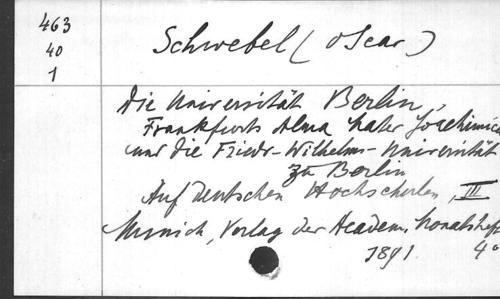 463
40
1
Schwebel (Oscar)
Die Universität Berlin,
Frankfurts Alma Mater Joachimica
und die Friedr-Wilhelms-Universität
zu Berlin
Auf Deutschen Hochschulen, III
Munich, Verlag der Academ. Monatshefte
1891 4°